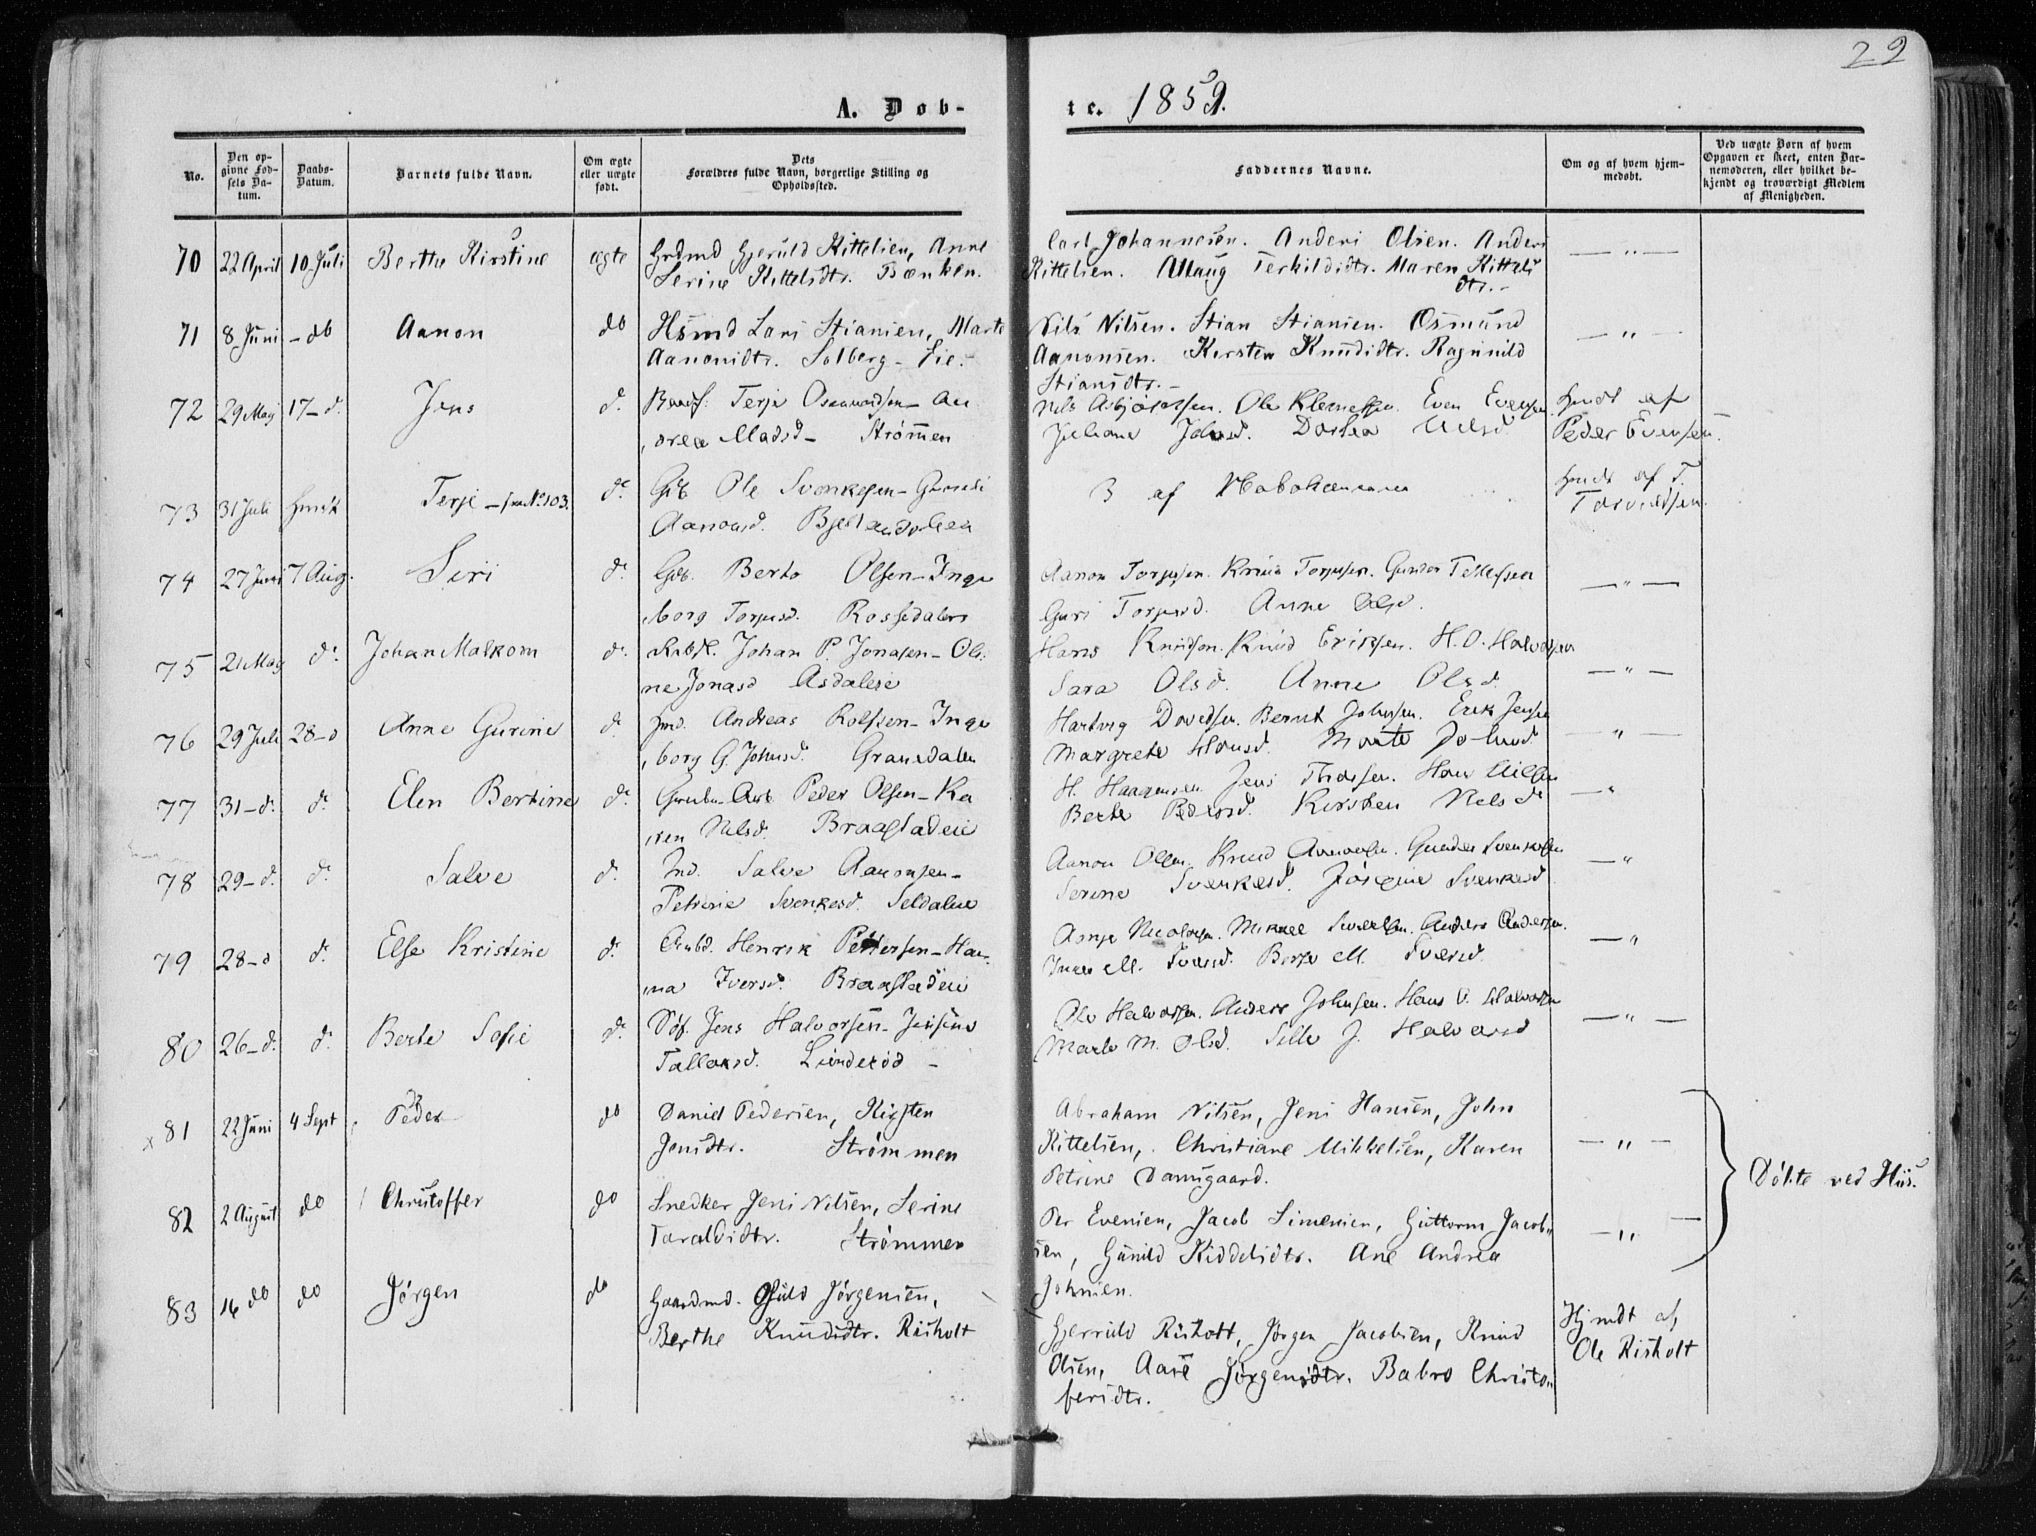 29
A. Døb-
te. 1859.
No.
Den op-
givne Fød-
sels Da-
tum.
Daabs-
Datum.
Barnets fulde Navn.
Om ægte
eller uægte
født.
Dets
Forældres fulde Navn, borgerlige Stilling og
Opholdssted.
Faddernes Navne.
Om og af hvem hjem-
medøbt.
Ved uægte Børn af hvem
Opgaven er skeet, enten Bar-
nemoderen, eller hvilket be-
kjendt og troværdigt Medlem
af Menigheden.
70 22 April 10 Juli Berthe Kirstine ægte Grdmd Gjeruld Kittelsen, Anne
Serine Kittelsdtr. Bænken.
Carl Johannesen. Anders Olsen. Anders
Kittelsen. Allaug Terkildsdtr. Maren Kittels
dtr. -
— " —
71 8 Juni - do Aanon do Hsmd Lars Stiansen, Marte
Aanonsdtr. Solberg - Eie.
Nils Nilsen. Stian Stiansen. Osmund
Aanonsen. Kirsten Knudsdtr. Ragnild
Stiansdtr. -
— " —
72 29 Maj 17 - d. Jens d. Terje Osmundsen - An
drea Madsd - Strømmen
Nils Asbjørnsen. Ole Klemetsen. Even Evensen
Juliane Dorthea Nilsd.
hmdt af
Peder Evensen.
73 31 Juli hmdt Terje - No 103. d. Gdb. Ole Svenkesen - Gunnild
Aanonsd.
3 af
hmdt af T.
74 27 Juni 7 Aug. Siri d. Gdb. Berto Olsen - Inge
borg Torjusd. Rossedalen
Aanon Torjusen. Knud Torjusen. Gunder Tellefsen
Guri Torjusd. Anne Olsd.
— " —
75 21 Maj d. Johan Malkom d. Johan P. Jonasen - Oli
ne Jonasd Asdaleie
Hans Knudsen. Knud Eriksen. H. O. Halvorsen
Sara Olsd. Anne Olsd.
— " —
76 29 Juli 28 - d Anne Gurine d. Jmd. Andreas Rolfsen - Inge
borg G. Johnsd. Granedalen
Hartvig Davidsen. Bernt Johnsen. Erik Jensen
Margrete Marte
— " —
77 31 - d. d. Elen Bertine d. Peder Olsen - Ka
ren Nilsd. Braastadeie
H. Jens Hans Nilsen
Berte Pedersd. Kirsten Nelsd
— "
78 29 - d. d. Salve d. Ind. Salve Aanonsen -
Petrine Svenkesd. Seldaleie
Aanon Olsen. Knud Aanonsen. Gunder Svenkesen
Serine Svenkesd. Josefine Svenkesd.
— "
79 28 - d d. Else Kristine d. Arbd. Henrik Pettersen - Han
na Iversd. Braastadeie
Mikael Anders Andersen.
— "
80 26 - d. d. Berte Sofie d. Søf. Jens Halvorsen - Jensine
Tallaksd. Lunderød -
Ole Halvorsen. Anders Johnsen. Hans O. Halvorsen
Marte M. Olsd. Sille J. Halvorsd
— " —
x 81 22 Juni 4 Sept Peder do Daniel Pedersen, Kirsten
Jensdtr. Strømmen
Abraham Nilsen, Jens Hansen, John
Kittelsen, Christiane Mikkelsen, Karen
Petrine Damsgaard.
— " —
Døbte ved Hiis.
82 2 August do Christoffer do Snedker Jens Nilsen, Serine
Taraldsdtr. Strømmen
Per Evensen, Jacob Simensen, Guttorm Jacob-
sen, Gunild Kiddelsdtr. Ane Andrea
Johnsen.
— " —
83 16 do do Jørgen do Gaardmd. Ojuld Jørgensen,
Berthe Knudsdtr. Risholt
Gjeruld Risholt, Jørgen Jacobsen, Knud
Olsen, Aase Jørgensdtr. Babro Christo-
fersdtr.
Hjmdt af
Ole Risholt